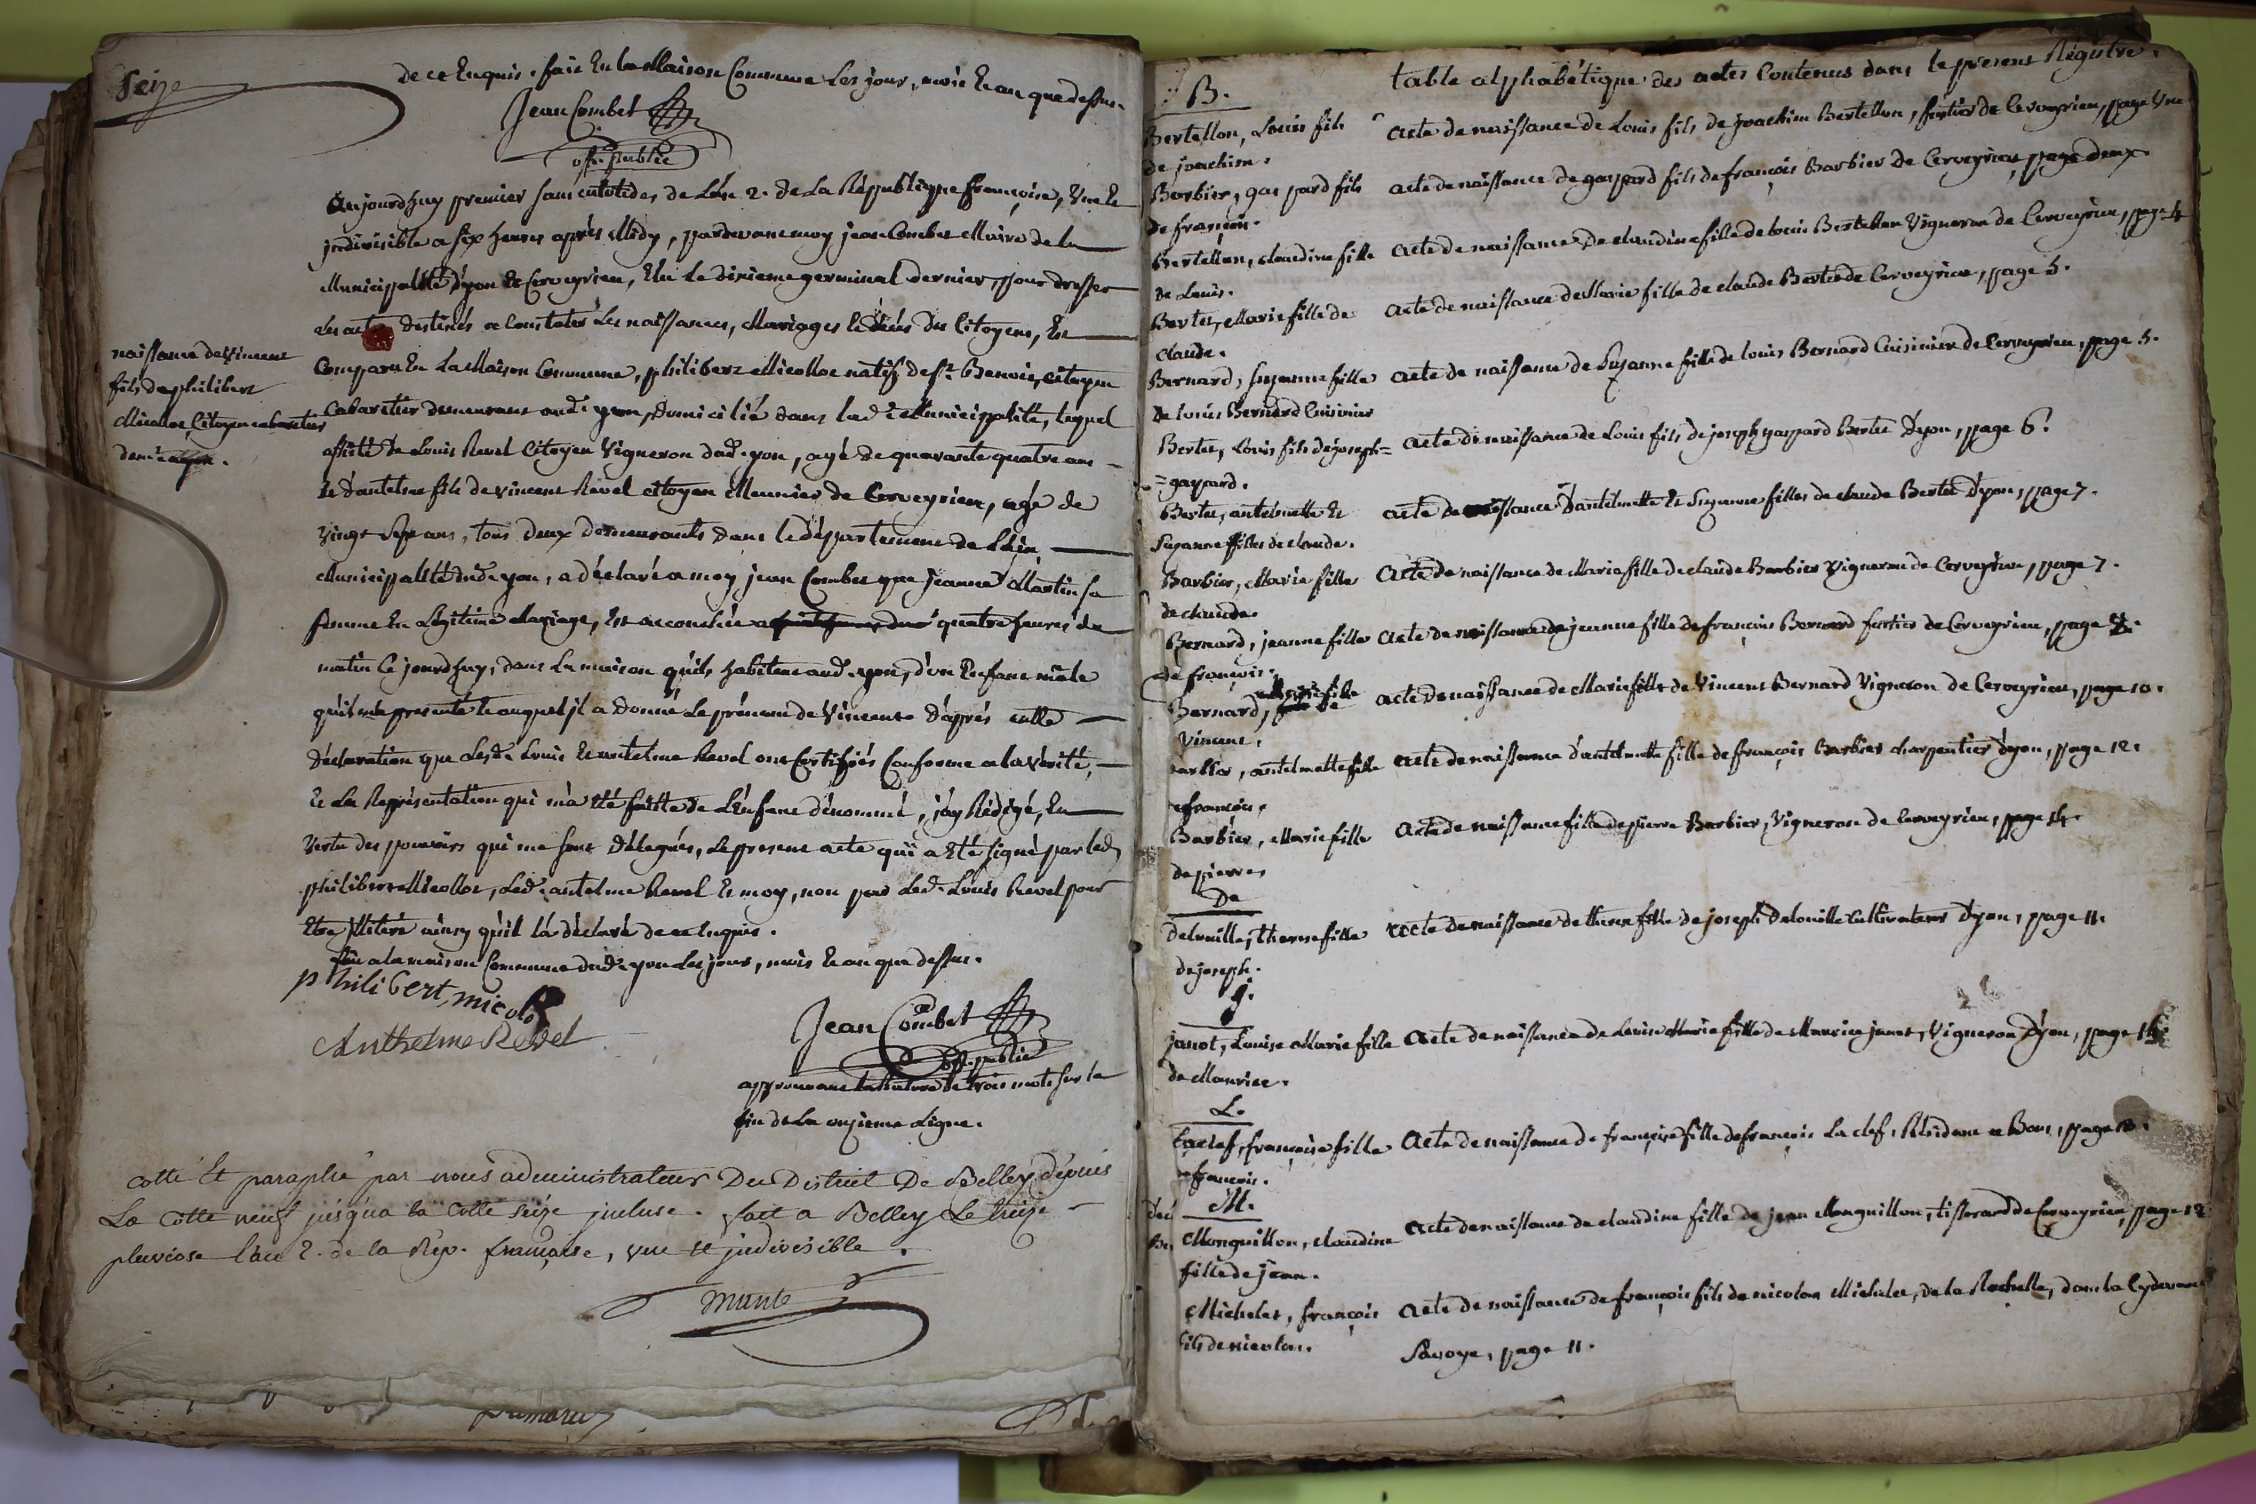 Seize
de ce Enquis. fait En la Maison Commune Les jour, mois Et an que dessus.
Jean Combet
off. public
Aujourd'huy premier sans culotides de L'an 2. de La République françoise, Une Et
jndivisible a six heures après Midy, pardevant moy jean Combet Maire de la
Municipalité d'yon Et Cerveyrieu, Elu Le dixieme germinal dernier, pour dresser
Les actes destinés a Constater Les naissances, Mariages Et décés des Citoyens, Est
naissance de Vincent
fils de philibert
Micollet, Citoyen cabaretier
demt. a yon.
Comparu En La Maison Commune, philibert Micollet natif de St. Benoit, citoyen
Cabaretier demeurant aud. yon, Domicilié dans lad. Municipalité, lequel
assisté de Louis Revel Citoyen Vigneron dud. yon, agé de quarante quatre ans
Et d'antelme fils de vincent Revel citoyen Meunier de Cerveyrieu, agé de
vingt Sept ans, tous deux demeurants dans le département de L'ain,
Municipalité dud. yon, a déclaré a moy jean Combet que jeanne Martin sa
femme En Légitime Mariage, Est accouchée quatre heures du
matin Ce jourd'huy, dans La maison qu'ils habitent aud. yon, d'un Enfant mâle
qu'il m'a presenté Et auquel jl a Donné Le prénom de Vincent d'après cette
Déclaration que Lesd. Louis Et antelme Revel ont Certifiés Conforme a la vérité,
Et La Représentation qui m'a Eté faitte de L'Enfant dénommé, j'ay Rédigé, En
Vertu des pouvoirs qui me sont Délegués, Le present acte qui a Eté signé par led.
philibert Micollet, Led. antelme Revel Et moy, non par Led. Louis Revel pour
Etre jllitéré ainsy qu'il L'a déclaré de ce Enquis.
fait a la maison Commune dud. yon Les jour, mois Et an que dessus.
philibert, micolet
Anthelme Revel
Jean Combet
off. public
approuvant La Rature de trois mots sur la
fin de La onzieme Ligne.
cotté Et paraphé par nous administrateur Du District De Belley depuis
La Cotte neuf jusqu'a la Cotte Seize jncluse. fait a Belley Le treize
pluviose l'an 2. de la Rép. française, une et jndivisible.
table alphabétique des actes Contenus dans le present Régistre.
B.
Bertellon, Louis fils acte de naissance de Louis fils de joachim Bertellon, de Cerveyrieu, page Une
de joachim.
Barbier, gaspard fils acte de naissance de gaspard fils de françois Barbier de Cerveyrieu, page deux.
de françois.
Bertellon, claudine fille acte de naissance De claudine fille de louis Bertellon Vigneron de Cerveyrieu, page 4
de Louis.
Bertet, Marie fille de acte de naissance de Marie fille de claude Bertet de Cerveyrieu, page 5.
claude.
Bernard, Suzanne fille acte de naissance de Suzanne fille de louis Bernard Cuisinier de Cerveyrieu, page 5.
de Louis Bernard Cuisinier
Bertet, Louis fils de joseph= acte de naissance de Louis fils de joseph gaspard Bertet d'yon, page 6.
=gaspard.
Bertet, antelmette Et acte de naissance d'antelmette Et Suzanne filles de claude Bertet d'yon, page 7.
Suzanne filles de claude.
Barbier, Marie fille acte de naissance de Marie fille de claude Barbier Vigneron de Cerveyrieu, page 7.
de claude.
Bernard, jeanne fille acte de naissance de jeanne fille de françois Bernard de Cerveyrieu, page 8.
de françois.
Bernard, Marie fille de acte de naissance de Marie fille de Vincent Bernard Vigneron de Cerveyrieu, page 10.
Vincent.
Barbier, antelmette fille acte de naissance d'antelmette fille de françois Barbier charpentier d'yon, page 12.
de françois.
Barbier, Marie fille acte de naissance fille de pierre Barbier, Vigneron de Cerveyrieu, page 14.
de pierre.
De
Delouille, therese fille acte de naissance de therese fille de joseph Delouille Cultivateur d'yon, page 11.
de joseph.
j.
janot, Louise Marie fille acte de naissance de Louise Marie fille de Maurice janot, Vigneron d'yon, page
de Maurice.
L.
Laclef, françoise fille acte de naissance de françoise fille de françois La clef, Résident a Bons, page
de françois.
M.
Monguillon, claudine acte de naissance de claudine fille de jean Monguillon, tisserand de Cerveyrieu, page 12
fille de jean.
Michelet, françois acte de naissance de françois fils de nicolas Michelet, de la Rochelle, dans la Cydevant
fils de nicolas.
Savoye, page 11.